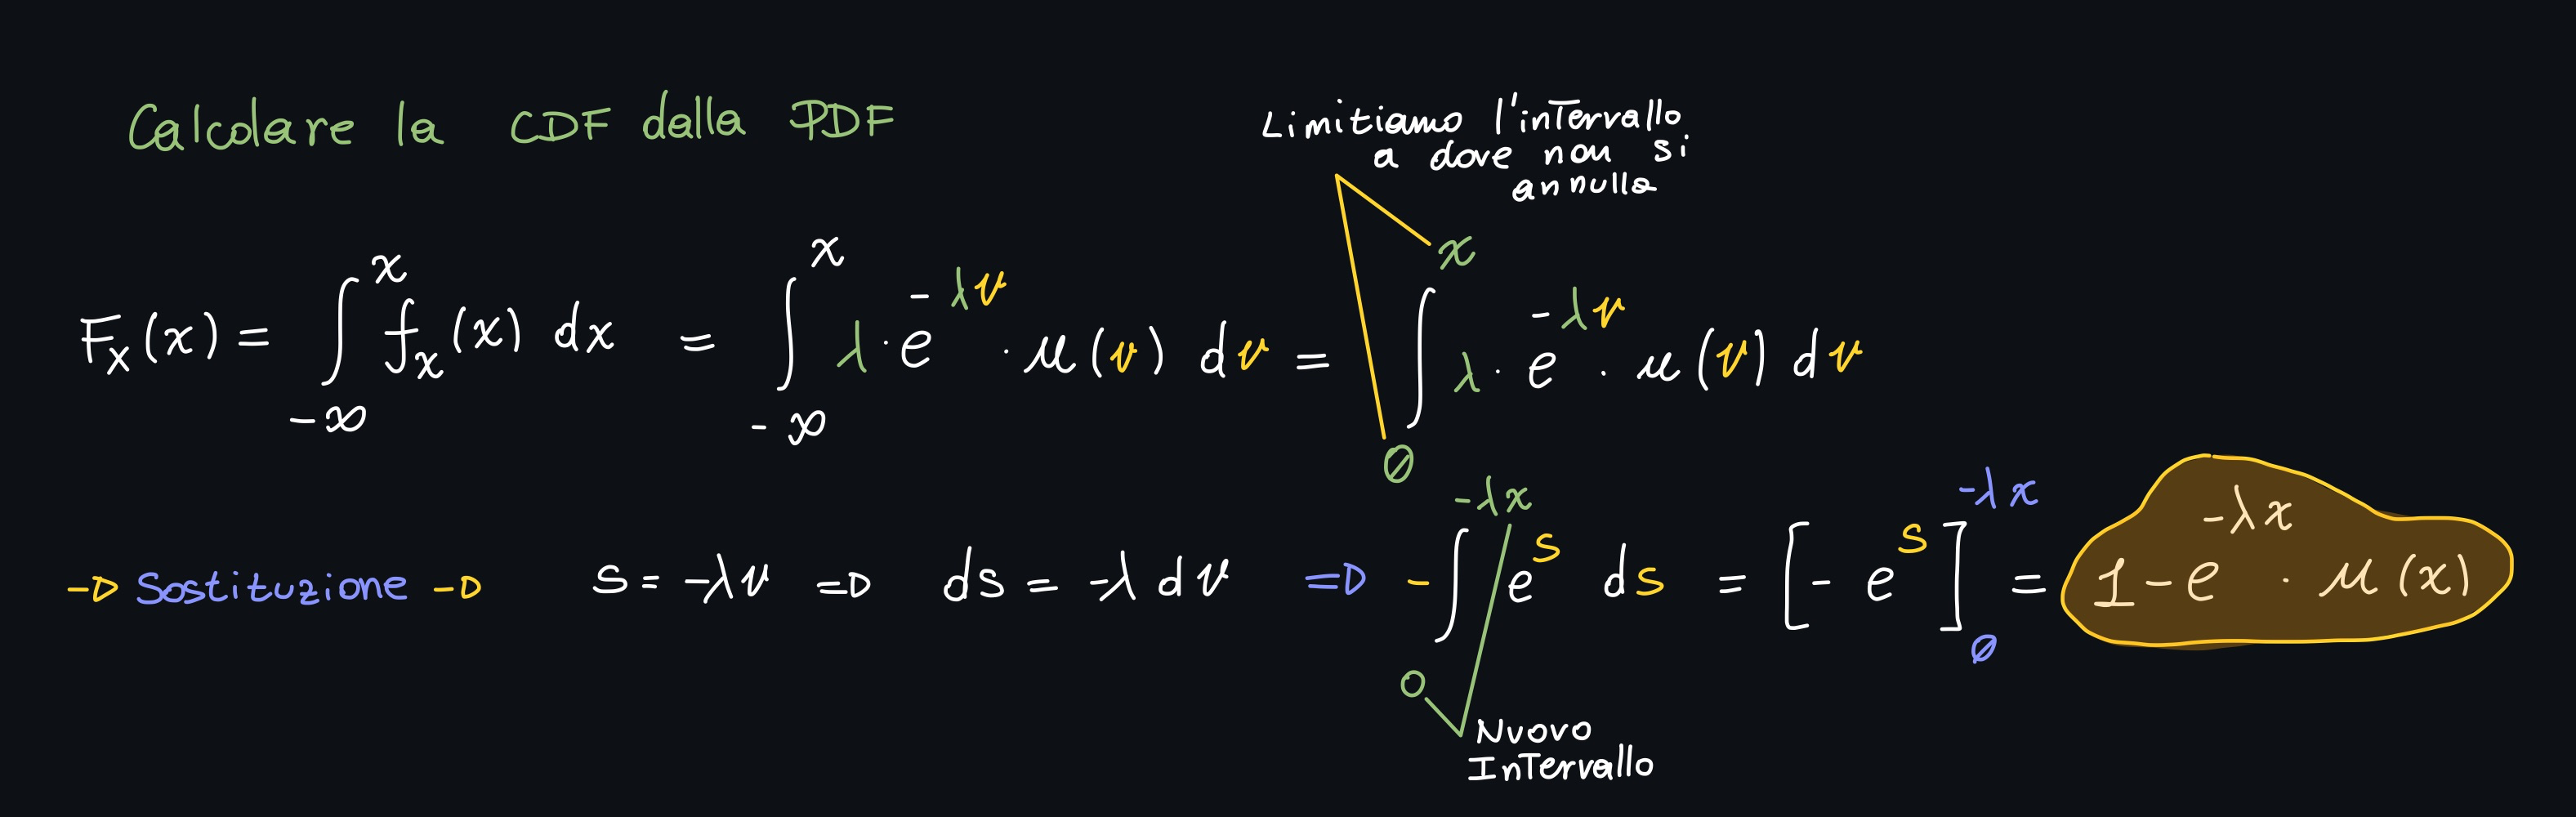 Calcolare la CDF dalla PDF
Limitiamo l'intervallo
a dove non si
annulla
F_X(x) = ∫_{-∞}^{x} f_x(x) dx = ∫_{-∞}^{x} λ · e^{-λv} · u(v) dv = ∫_{0}^{x} λ · e^{-λv} · u(v) dv
-D Sostituzione -D s = -λv =D ds = -λ dv =D -∫_{0}^{-λx} e^{s} ds = [- e^{s}]_{0}^{-λx} = 1 - e^{-λx} · u(x)
Nuovo
Intervallo